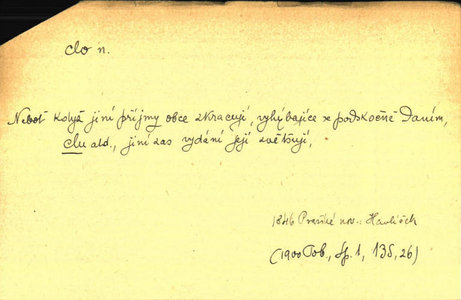 clo n.
Neboť když jiní příjmy obce zkracují, vyhýbajíce se podskočně daním,
clu atd., jiní zas vydání její zvětšují,
1846 Pražské nov.: Havlíček
(1900 Tob., Sp. 1, 135, 26)